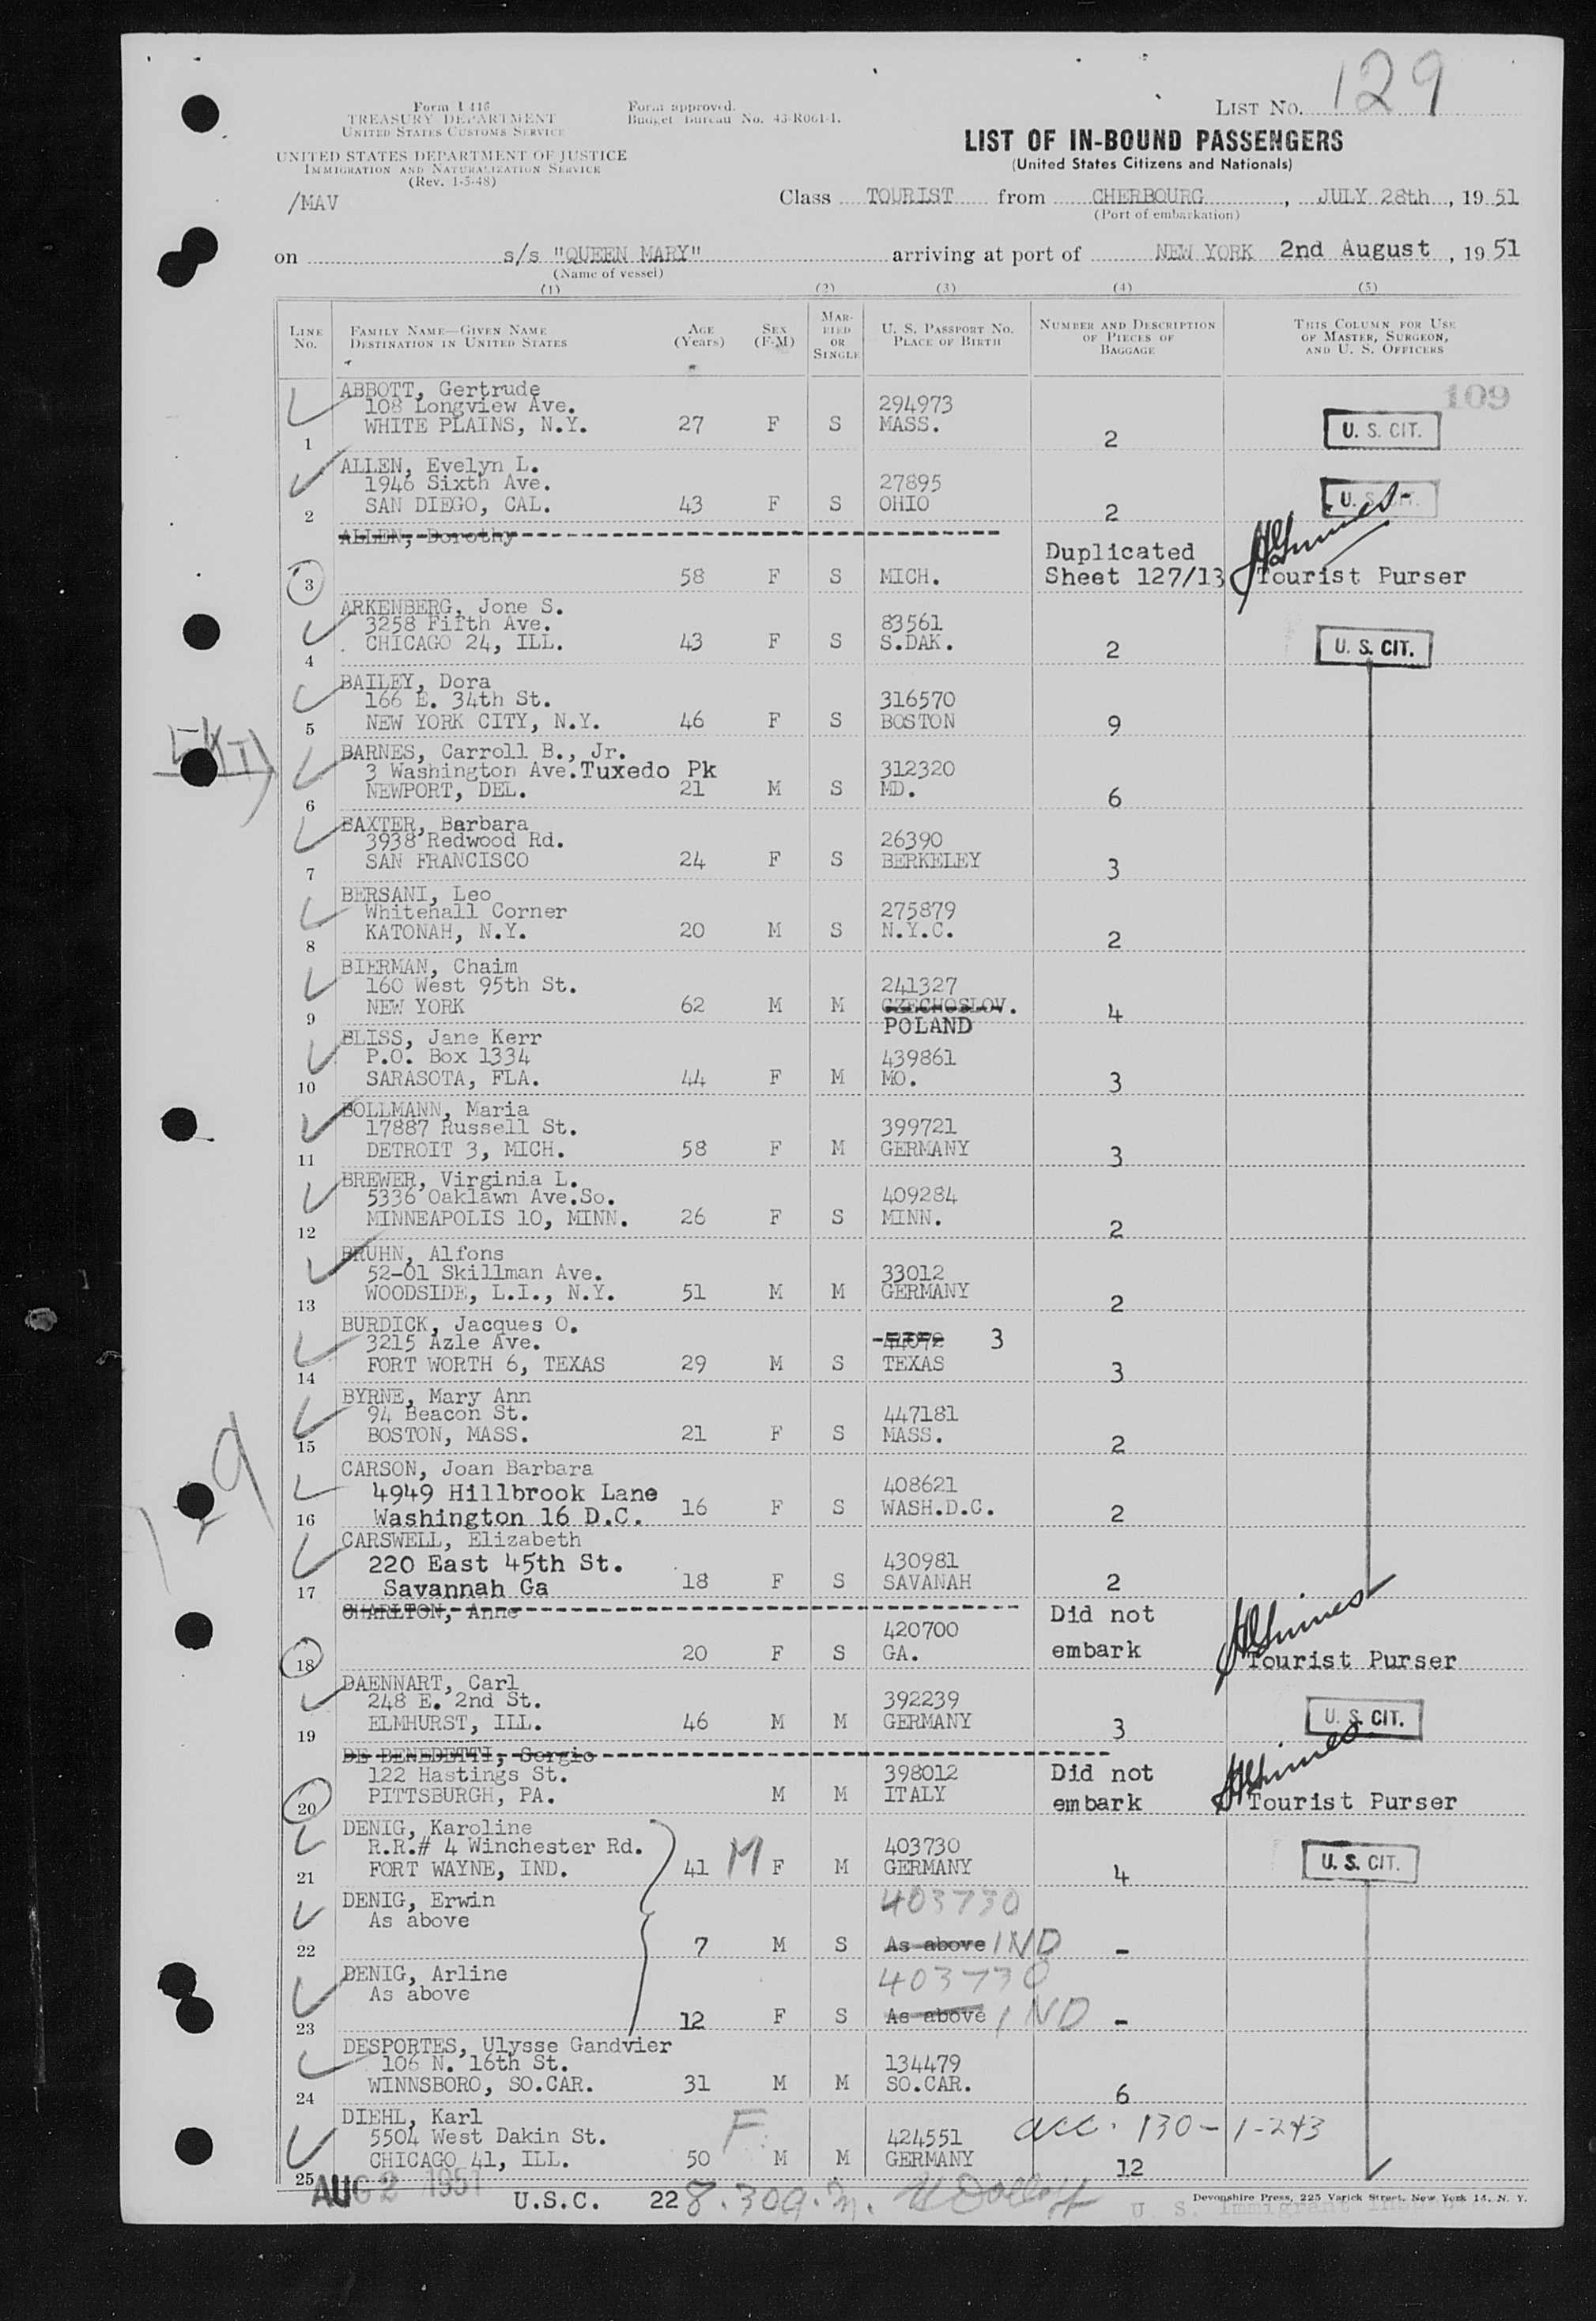 129
Form I 418
TREASURY DEPARTMENT
UNITED STATES CUSTOMS SERVICE
Form approved.
Budget Bureau No. 43-R061-1.
LIST NO.
LIST OF IN-BOUND PASSENGERS
(United States Citizens and Nationals)
UNITED STATES DEPARTMENT OF JUSTICE
IMMIGRATION AND NATURALIZATION SERVICE
(Rev. 1-5-48)
/MAV
Class TOURIST from CHERBOURG, JULY 28th, 19 51
(Port of embarkation)
on s/s "QUEEN MARY" arriving at port of NEW YORK 2nd August, 19 51
(Name of vessel)
(1) (2) (3) (4) (5)
LINE NO. FAMILY NAME—GIVEN NAME DESTINATION IN UNITED STATES AGE (Years) SEX (F-M) MARRIED OR SINGLE U. S. PASSPORT NO. PLACE OF BIRTH NUMBER AND DESCRIPTION OF PIECES OF BAGGAGE THIS COLUMN FOR USE OF MASTER, SURGEON, AND U. S. OFFICERS
109
ABBOTT, Gertrude
108 Longview Ave. 294973
WHITE PLAINS, N.Y. 27 F S MASS. U. S. CIT.
1 2
ALLEN, Evelyn L.
1946 Sixth Ave. 27895
SAN DIEGO, CAL. 43 F S OHIO U. S. CIT.
2 2
ALLEN, Dorothy
Duplicated
3 58 F S MICH. Sheet 127/13 Tourist Purser
ARKENBERG, Jone S.
3258 Fifth Ave. 83561
CHICAGO 24, ILL. 43 F S S.DAK. 2 U. S. CIT.
4
BAILEY, Dora
166 E. 34th St. 316570
NEW YORK CITY, N.Y. 46 F S BOSTON 9
5
BARNES, Carroll B., Jr.
3 Washington Ave. Tuxedo Pk 312320
NEWPORT, DEL. 21 M S MD. 6
6
BAXTER, Barbara
3938 Redwood Rd. 26390
SAN FRANCISCO 24 F S BERKELEY 3
7
BERSANI, Leo
Whitehall Corner 275879
KATONAH, N.Y. 20 M S N.Y.C. 2
8
BIERMAN, Chaim
160 West 95th St. 241327
NEW YORK 62 M M CZECHOSLOV. 4
9 POLAND
BLISS, Jane Kerr
P.O. Box 1334 439861
SARASOTA, FLA. 44 F M MO. 3
10
BOLLMANN, Maria
17887 Russell St. 399721
DETROIT 3, MICH. 58 F M GERMANY 3
11
BREWER, Virginia L.
5336 Oaklawn Ave.So. 409284
MINNEAPOLIS 10, MINN. 26 F S MINN. 2
12
BRUHN, Alfons
52-01 Skillman Ave. 33012
WOODSIDE, L.I., N.Y. 51 M M GERMANY 2
13
BURDICK, Jacques O.
3215 Azle Ave. 3
FORT WORTH 6, TEXAS 29 M S TEXAS 3
14
BYRNE, Mary Ann
94 Beacon St. 447181
BOSTON, MASS. 21 F S MASS. 2
15
CARSON, Joan Barbara
4949 Hillbrook Lane 408621
Washington 16 D.C. 16 F S WASH.D.C. 2
16
CARSWELL, Elizabeth
220 East 45th St. 430981
Savannah Ga 18 F S SAVANAH 2
17
CHARLTON, Anne Did not
420700
18 20 F S GA. embark Tourist Purser
DAENNART, Carl
248 E. 2nd St. 392239
ELMHURST, ILL. 46 M M GERMANY 3 U. S. CIT.
19
DE BENEDETTI, Sergio
122 Hastings St. 398012 Did not
PITTSBURGH, PA. M M ITALY embark Tourist Purser
20
DENIG, Karoline
R.R.# 4 Winchester Rd. 403730
FORT WAYNE, IND. 41 M F M GERMANY 4 U. S. CIT.
21
DENIG, Erwin 403730
As above
22 7 M S As above IND -
DENIG, Arline 403730
As above
23 12 F S As above IND -
DESPORTES, Ulysse Gandvier
106 N. 16th St. 134479
WINNSBORO, SO.CAR. 31 M M SO.CAR. 6
24
DIEHL, Karl
5504 West Dakin St. F 424551 acc. 130-1-243
CHICAGO 41, ILL. 50 M M GERMANY 12
25
AUG 2 1951
U.S.C. 22 8.30a.m.
Devonshire Press, 225 Varick Street, New York 14, N. Y.
U. S. Immigrant
129